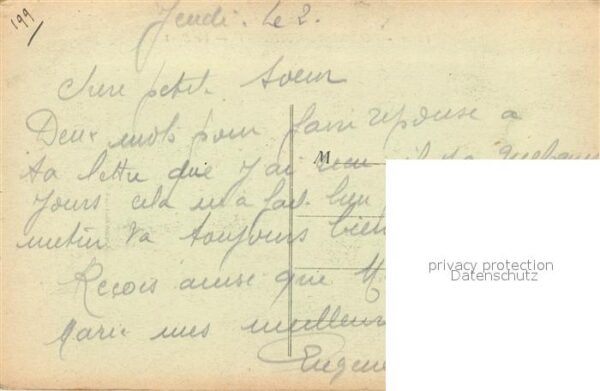 199
Jeudi. Le 2.
Chere petite Soeur
Deux mots pour faire reponse a
ta lettre que J'ai recu il y a quelques
Jours cela m'a fait bien
M
va toujours bien
Recois ainsi que M
Marie mes meilleur
Eugene
privacy protection
Datenschutz